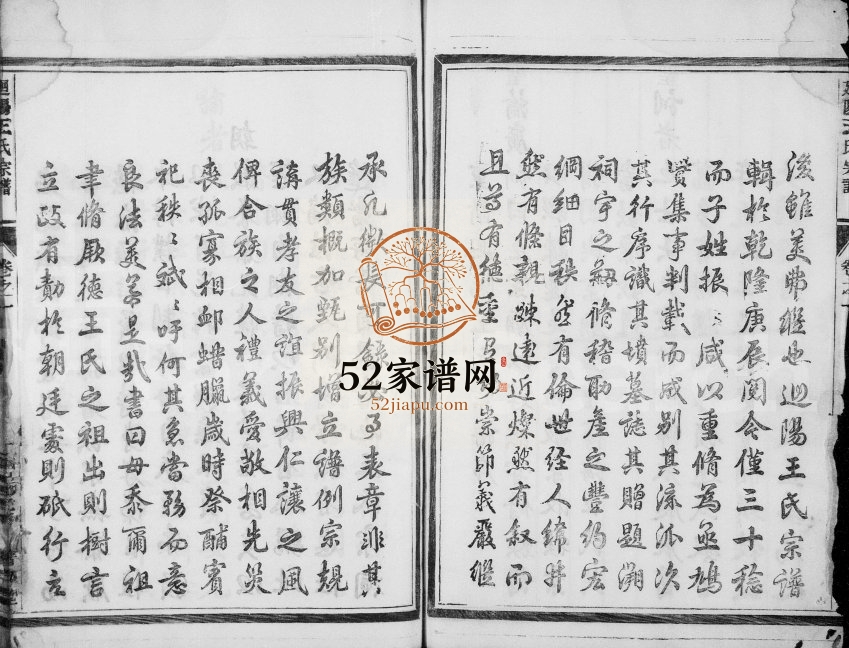 後雖美弗繼也迴陽王氏宗譜
輯於乾隆庚辰閱今僅三十稔
而子姓振〻咸以重脩為亟鳩
賢集事判載而成別其流派次
其行序識其墳墓誌其贈題溯
祠宇之剏脩稽耴產之豐約宏
綱細目秩然有倫世經人緯井
然有條親疎遠近燦然有叙而
且尊有德重崇節義嚴繼
承表章非其
族類概加甄別增立譜例宗規
講貫孝友之誼振興仁讓之風
俾合族之人禮義愛敬相先災
喪孤寡相卹蜡臘歲時祭酺賓
祀秩〻斌〻吁何其急當務而意
良法美若是哉書曰毋忝爾祖
聿脩厥德王氏之祖出則樹言
立政有勣於朝廷處則砥行立
王氏宗譜
卷之一
52家谱网
52jiapu.com